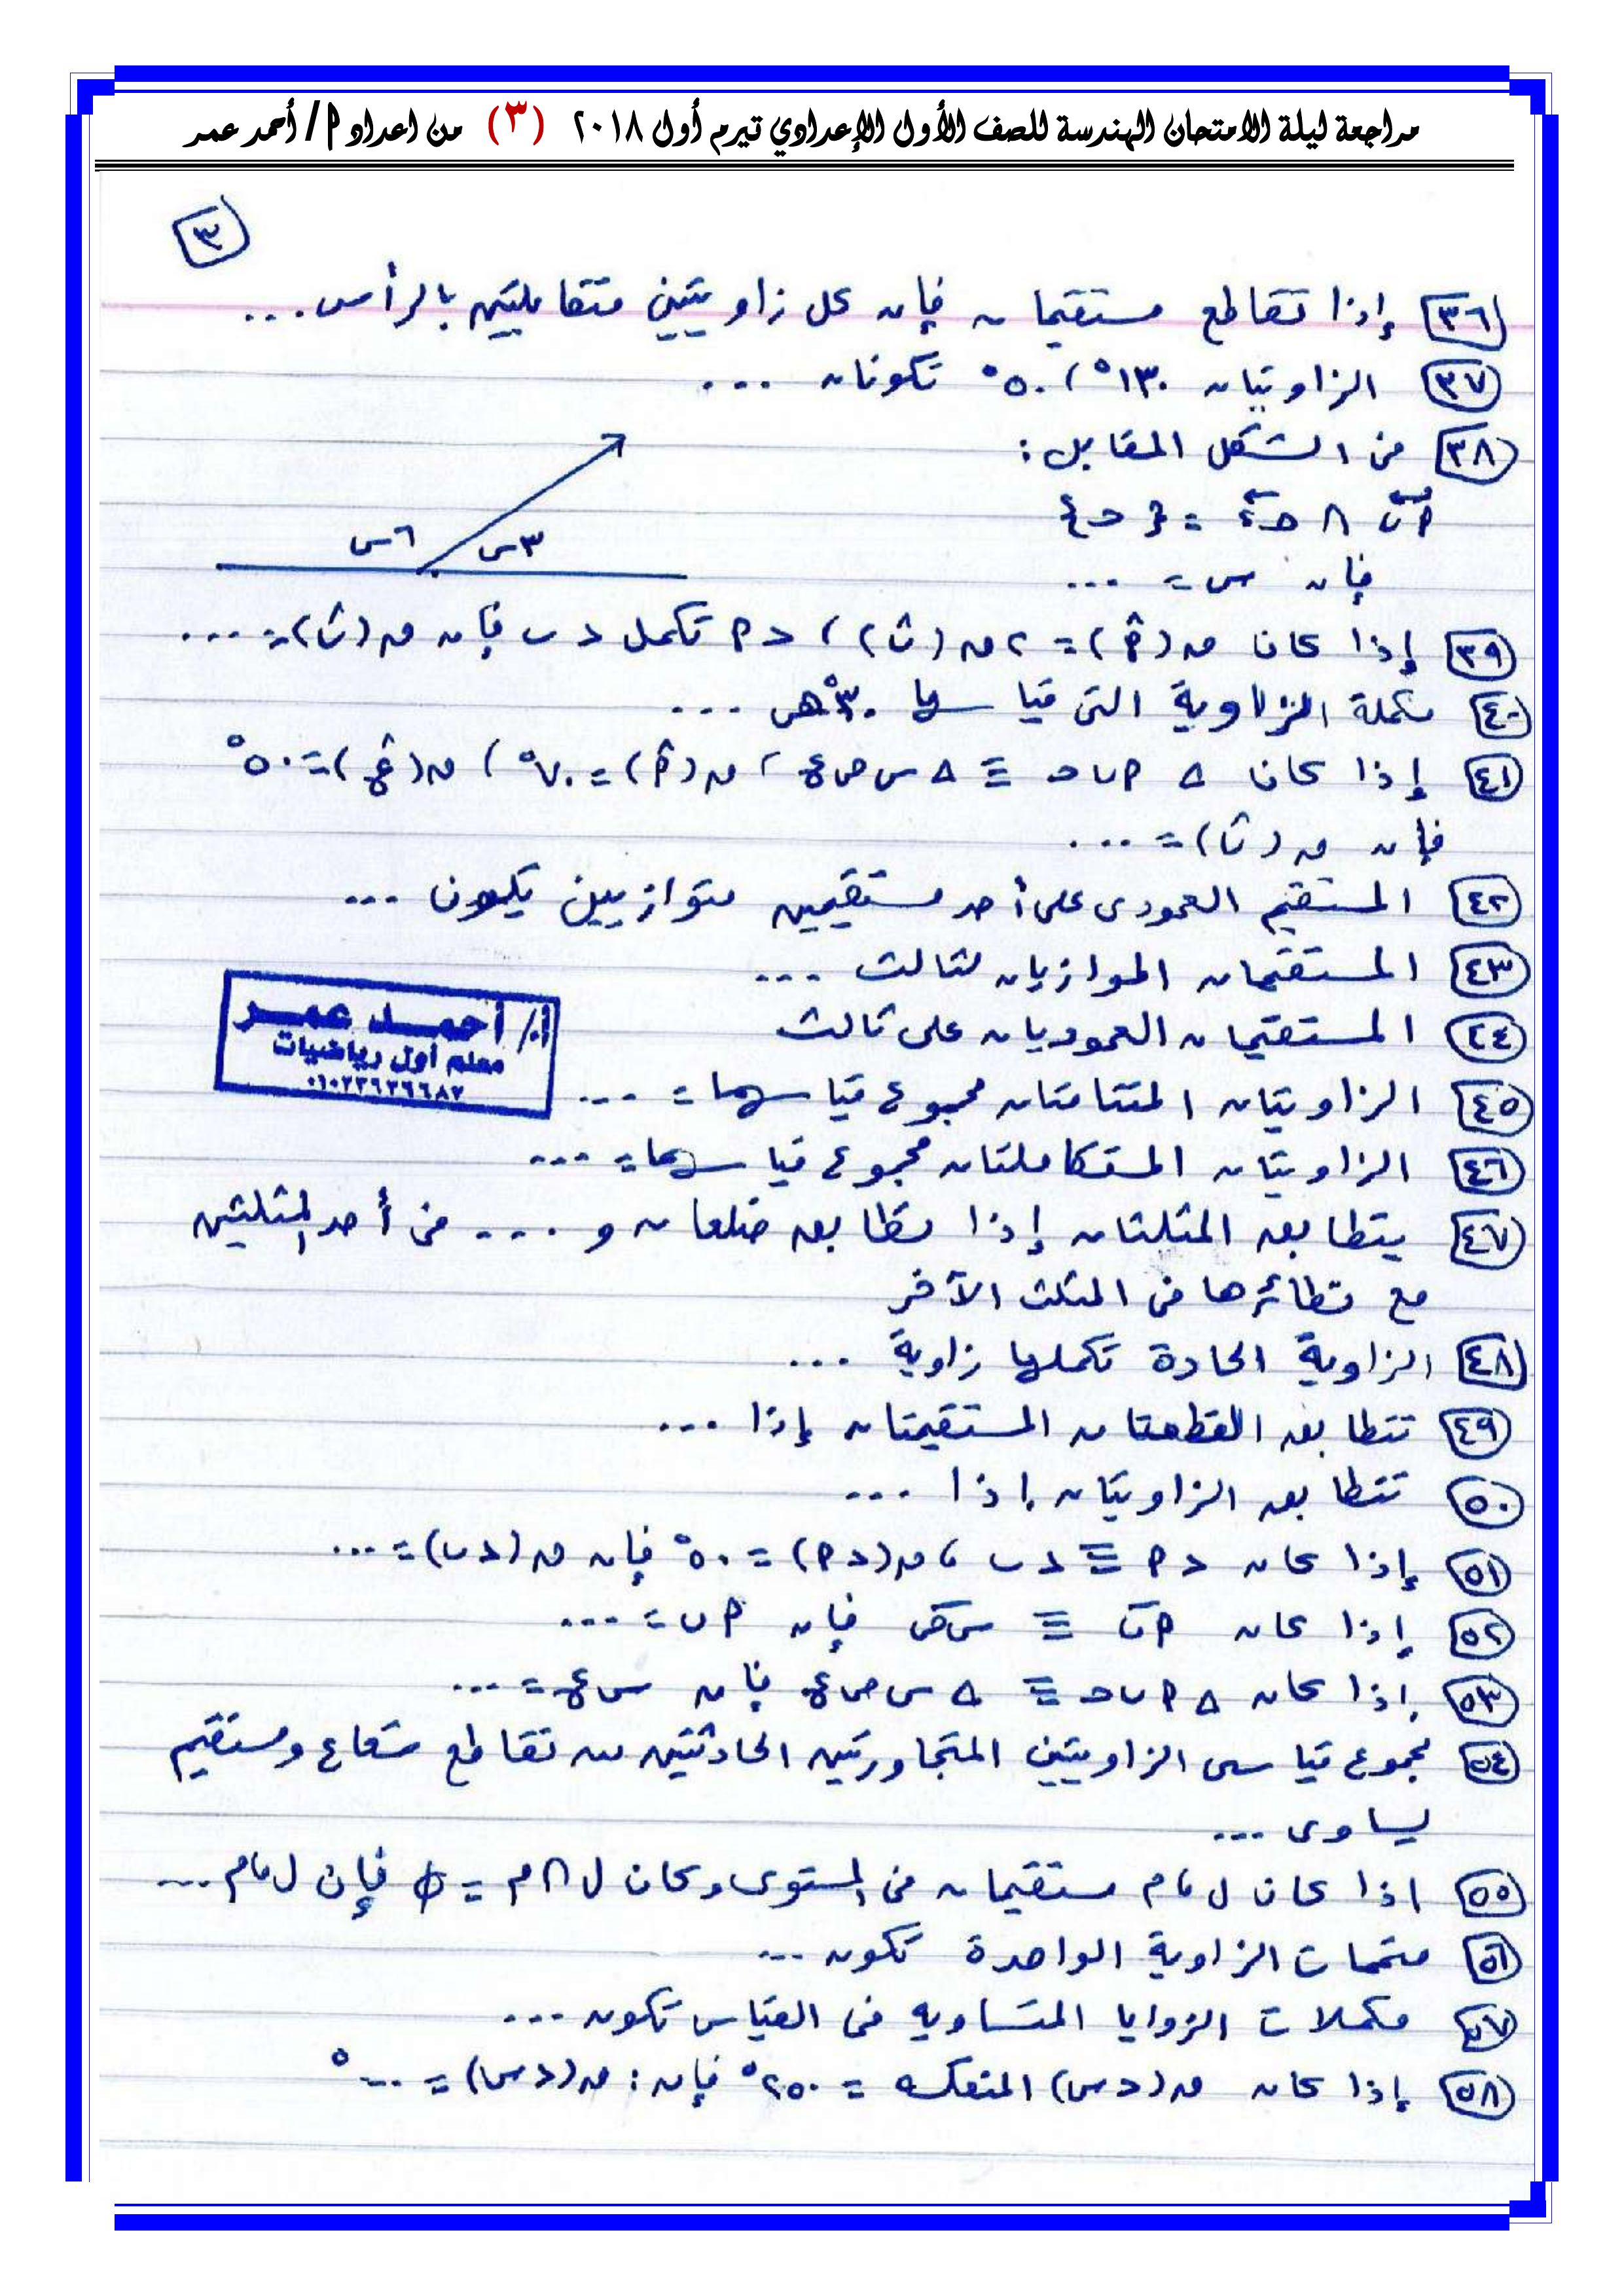 مراجعة ليلة الامتحان الهندسة للصف الأول الإعدادي تيرم أول ٢٠١٨ (٣) من اعداد أ/ أحمد عمر
٣
٣٦ إذا تقاطع مستقيمان فإن كل زاويتين متقابلتين بالرأس ...
٣٧ الزاويتان ١٣٠°، ٥٠° تكونان ...
٣٨ من الشكل المقابل:
أب ∩ جـ د = {جـ}
فإن س = ...
٦س ٣س
٣٩ إذا كان ق(أ) = ٢ ق(ب)، د أ تكمل د ب فإن ق(ب) = ...
٤٠ مكملة الزاوية التى قياسها ٣٠° هى ...
٤١ إذا كان Δ أ ب جـ ≡ Δ س ص ع، ق(أ) = ٧٠°، ق(ع) = ٥٠°
فإن ق(ب) = ...
٤٢ المستقيم العمودى على أحد مستقيمين متوازيين يكون ...
٤٣ المستقيمان الموازيان لثالث ...
٤٤ المستقيمان العموديان على ثالث
٤٥ الزاويتان المتتامتان مجموع قياسهما = ...
أ/ أحمد عمر
معلم أول رياضيات
٠١٠٢٢٦٢٦٦٨٧
٤٦ الزاويتان المتكاملتان مجموع قياسهما = ...
٤٧ يتطابق المثلثان إذا تطابق ضلعان و .... من أحد المثلثين
مع نظائرها فى المثلث الآخر
٤٨ الزاوية الحادة تكملها زاوية ...
٤٩ تتطابق القطعتان المستقيمتان إذا ...
٥٠ تتطابق الزاويتان إذا ...
٥١ إذا كان د أ ≡ د ب، ق(د أ) = ٥٠° فإن ق(د ب) = ...
٥٢ إذا كان أب ≡ س ص فإن أب = ...
٥٣ إذا كان Δ أ ب جـ ≡ Δ س ص ع فإن س ع = ...
٥٤ مجموع قياسى الزاويتين المتجاورتين الحادثتين من تقاطع شعاع ومستقيم
يساوى ...
٥٥ إذا كان ل، م مستقيمان فى المستوى وكان ل ∩ م = ∅ فإن ل، م ...
٥٦ متممات الزاوية الواحدة تكون ...
٥٧ مكملات الزوايا المتساويه فى القياس تكون ...
٥٨ إذا كان ق(د س) المنعكسه = ٢٥٠° فإن: ق(د س) = ...°